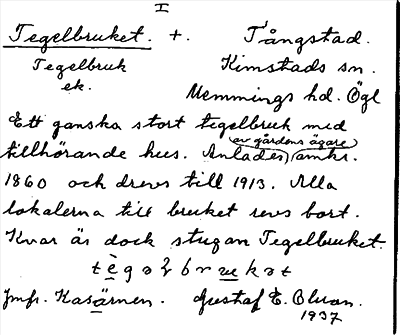 I
Tegelbruket. +. Tångstad.
Tegelbruk Kimstads sn.
ek. Memmings hd. Ögl
Ett ganska stort tegelbruk med
tillhörande hus. Anlades av gårdens ägare omkr.
1860 och drevs till 1913. Alla
lokalerna till bruket revs bort.
Kvar är dock stugan Tegelbruket.
Jmfr. Kasärnen. Gustaf E. Olsson.
1937